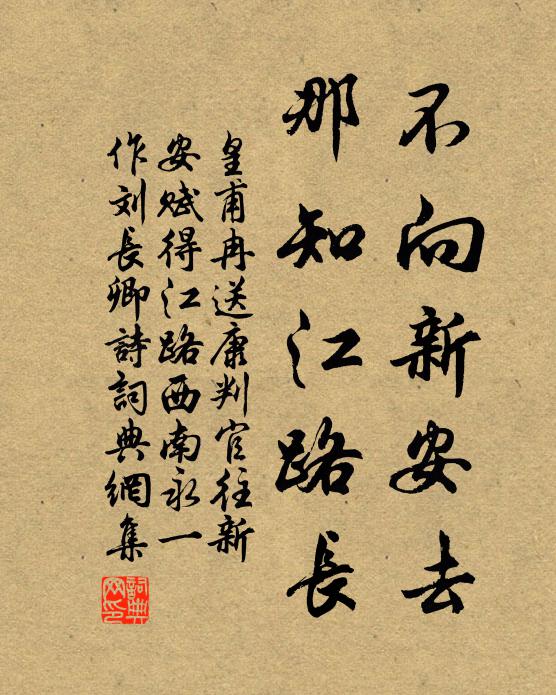 不向新安去
那知江路長
皇甫冉送康判官往新
安賦得江路西南永一
作刘長卿詩詞典網集
詞典網印